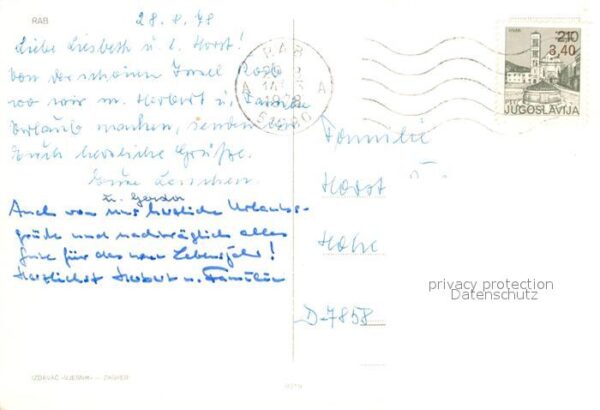 RAB
28.8.78
Liebe Liesbeth u. l. Horst!
Von der schönen Insel Rab
wo wir m. Herbert u. Familie
Urlaub machen, senden wir
Euch herzliche Grüße.
Eure
u. Gerda
Auch von uns herzliche Urlaubs-
grüße und nachträglich alles
Gute für das neue Lebensjahr!
Herzlichst Herbert u. Familie
IZDAVAČ »VJESNIK« – ZAGREB
RAB
A A
51280
HVAR
2,10
3,40
PTT
JUGOSLAVIJA
Familie
Horst
D-7858
privacy protection
Datenschutz